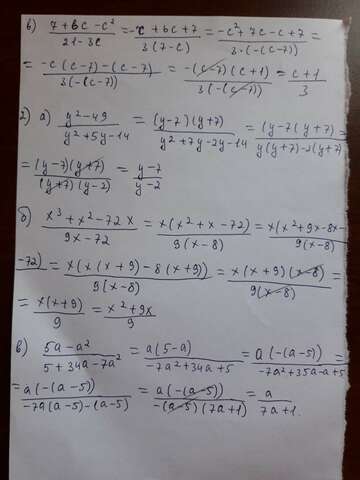 в) (7+6c-c²)/(21-3c) = (-c+6c+7)/(3(7-c)) = (-c²+7c-c+7)/(3·(-(c-7))) =
= (-c(c-7)-(c-7))/(3(-(c-7))) = (-(c-7)(c+1))/(3(-(c-7))) = (c+1)/3
2) а) (y²-49)/(y²+5y-14) = ((y-7)(y+7))/(y²+7y-2y-14) = ((y-7(y+7)/(y(y+7)-2(y+7) =
= ((y-7)(y+7))/((y+7)(y-2)) = (y-7)/(y-2)
б) (x³+x²-72x)/(9x-72) = (x(x²+x-72))/(9(x-8)) = (x(x²+9x-8x-
-72))/(9(x-8)) = (x(x(x+9)-8(x+9)))/(9(x-8)) = (x(x+9)(x-8))/(9(x-8)) =
= (x(x+9))/9 = (x²+9x)/9
в) (5a-a²)/(5+34a-7a²) = (a(5-a))/(-7a²+34a+5) = (a(-(a-5)))/(-7a²+35a-a+5) =
= (a(-(a-5)))/(-7a(a-5)-(a-5)) = (a(-(a-5)))/(-(a-5)(7a+1)) = a/(7a+1).